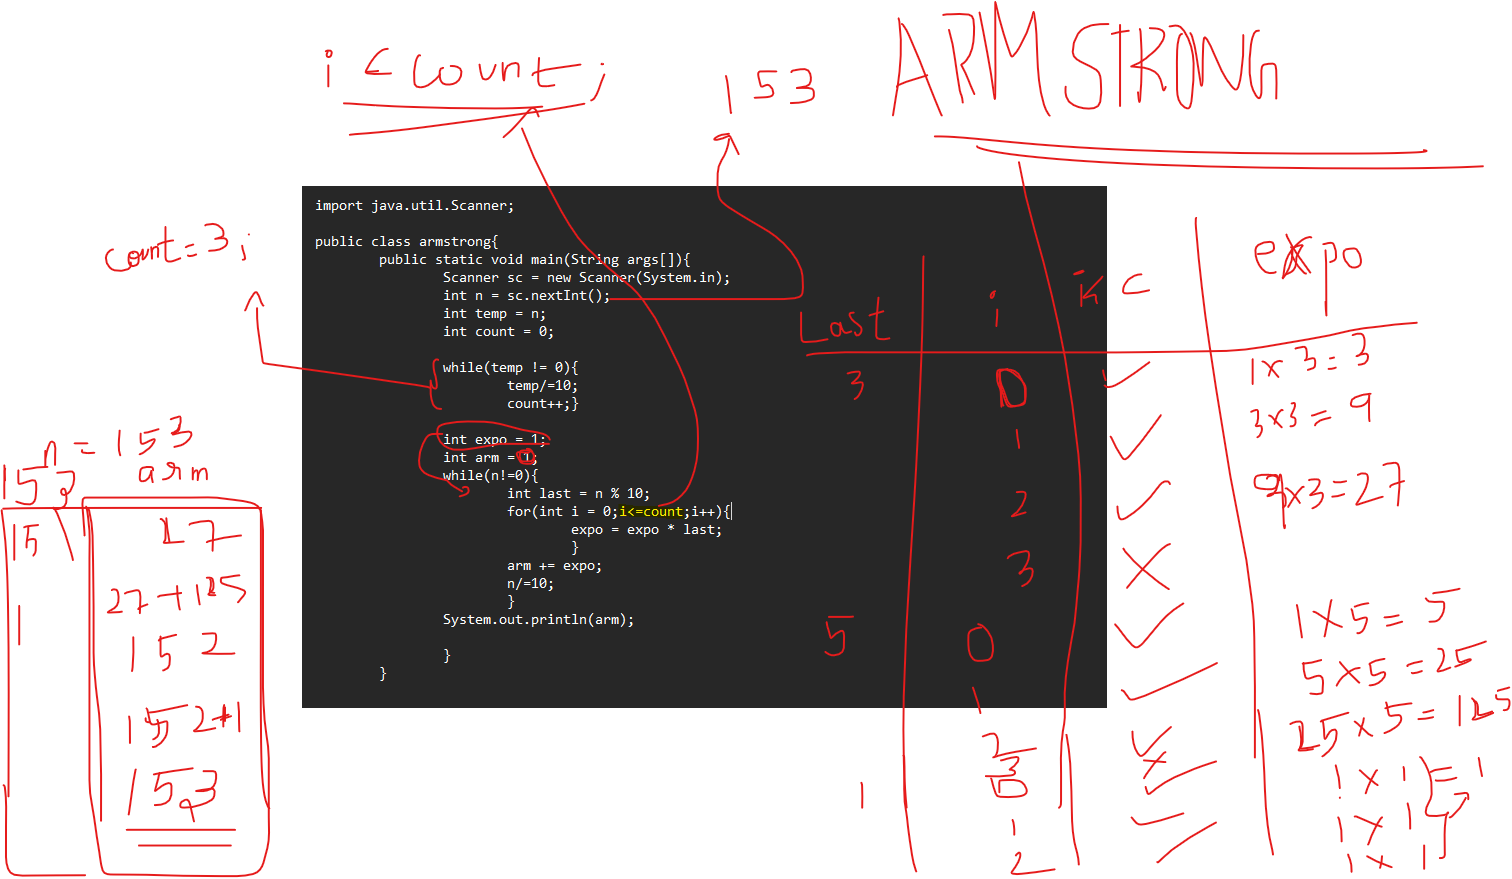 i < count;
153
ARMSTRONG
import java.util.Scanner;
public class armstrong{
public static void main(String args[]){
Scanner sc = new Scanner(System.in);
int n = sc.nextInt();
int temp = n;
int count = 0;
while(temp != 0){
temp/=10;
count++;}
int expo = 1;
int arm = 1;
while(n!=0){
int last = n % 10;
for(int i = 0;i<=count;i++){
expo = expo * last;
}
arm += expo;
n/=10;
}
System.out.println(arm);
}
}
count = 3;
n = 153
153 arm
15 27
27+125
1 152
152+1
153
Last i < c expo
3 0 1x3=3
1 3x3=9
2 9x3=27
3
5 0 1x5=5
1 5x5=25
2 25x5=125
3
1 0 1x1=1
1 1x1
2 1x1